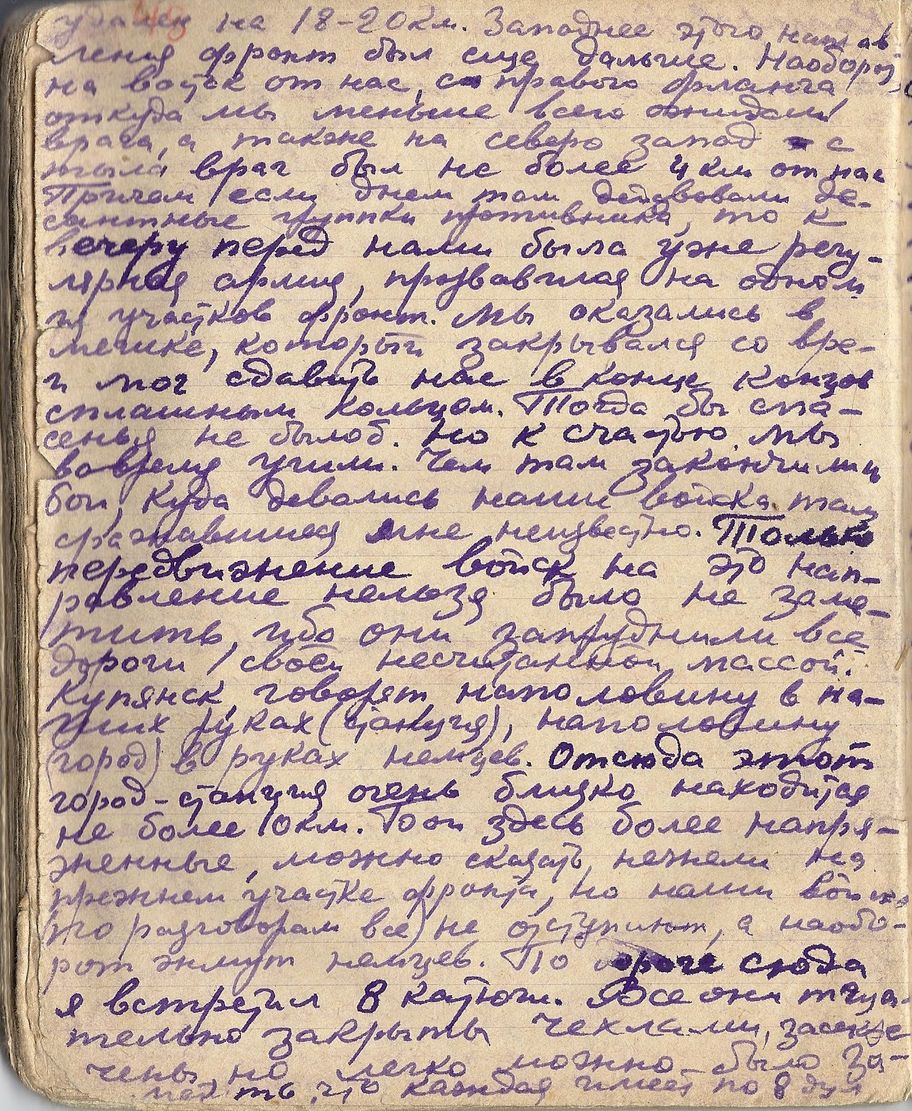 удален на 18-20км. Западнее этого направ
ления фронт был еще дальше. Наоборот
на восток от нас, с правого фланга,
откуда мы меньше всего ожидали
врага, а также на северо запад - с
тыла враг был не более 4 км от нас
Причем если днем там действовали де-
сантные группки противника, то к
вечеру перед нами была уже регу-
лярная армия, прорвавшая на одном
из участков фронт. Мы оказались в
мешке, который закрывался со вре-
и мог сдавить нас в конце концов
сплошным кольцом. Тогда бы спа-
сенья не былоб. Но к счастью мы
вовремя ушли. Чем там закончились
бои, куда девались наши войска там
сражавшиеся мне неизвестно. Только
передвижение войск на это нап-
равление нельзя было не заме-
тить, ибо они запрудили все
дороги своей несчитанной массой.
Купянск, говорят, наполовину в на-
ших руках (станция), наполовину
(город) в руках немцев. Отсюда этот
город-станция очень близко находится
не более 10км. Бои здесь более напря-
женные, можно сказать, нежели на
прежнем участке фронта, но наши войска
(по разговорам все) не отступают, а наобо-
рот жмут немцев. По дороге сюда
я встретил 8 катюш. Все они тща-
тельно закрыты чехлами, засекре-
чены но легко можно было за-
метить, что каждая имеет по 8 дул